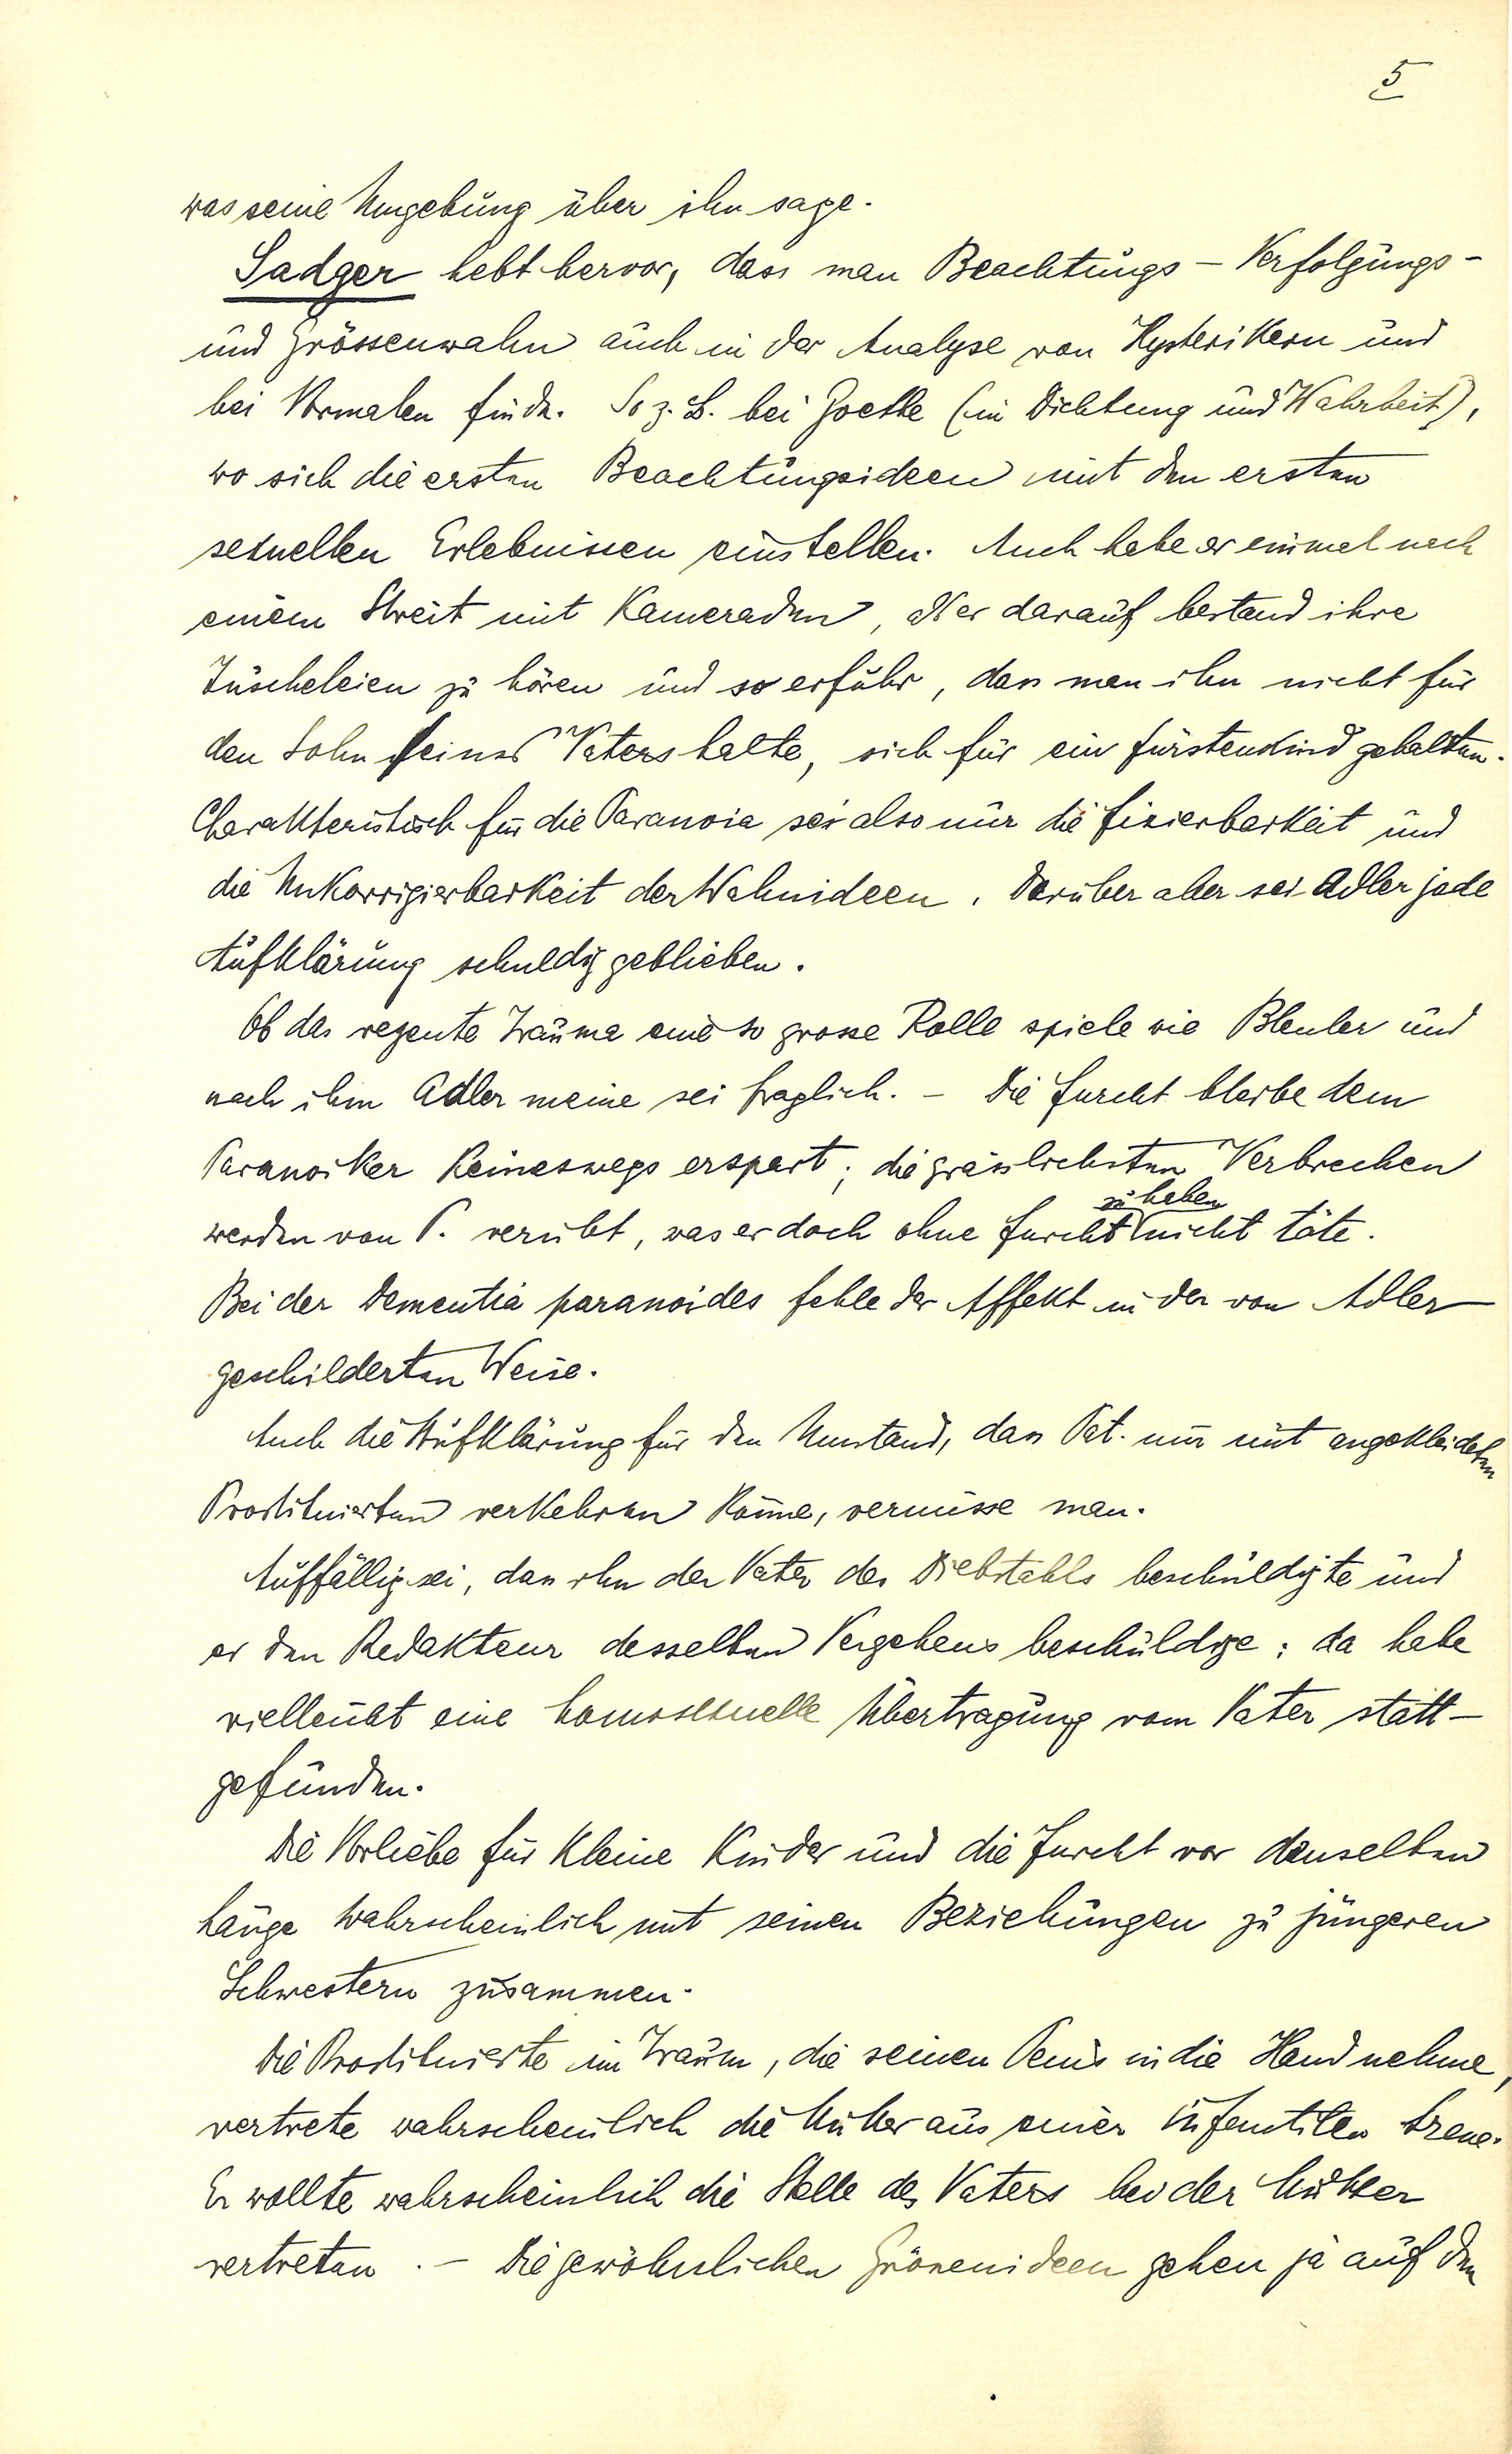 5
was seine Umgebung über ihn sage.
Sadger hebt hervor, dass man Beachtungs- Verfolgungs-
und Grössenwahn auch in der Analyse von Hysterikern und
bei Normalen finde. So z.B. bei Goethe (in Dichtung und Wahrheit),
wo sich die ersten Beachtungsideen mit den ersten
sexuellen Erlebnissen einstellen. Auch habe er einmal nach
einem Streit mit Kameraden, als er darauf bestand ihre
Tuscheleien zu hören und so erfuhr, dass man ihn nicht für
den Sohn seines Vaters halte, sich für ein Fürstenkind gehalten.
Charakteristisch für die Paranoia sei also nur die Fixierbarkeit und
die Unkorrigierbarkeit der Wahnideen. Darüber aber sei Adler jede
Aufklärung schuldig geblieben.
Ob das rezente Trauma eine so grosse Rolle spiele wie Bleuler und
nach ihm Adler meine sei fraglich. – Die Furcht bleibe dem
Paranoiker keineswegs erspart; die grässlichsten Verbrechen
zu haben
werden von P. verübt, was er doch ohne Furcht nicht täte.
Bei der Dementia paranoides fehle der Affekt in der von Adler
geschilderten Weise.
Auch die Aufklärung für den Umstand, dass Pat. nur mit angekleideten
Prostituierten verkehren könne, vermisse man.
Auffällig sei, dass ihn der Vater des Diebstahls beschuldigte und
er den Redakteur desselben Vergehens beschuldige: da habe
vielleicht eine homosexuelle Übertragung vom Vater statt-
gefunden.
Die Vorliebe für kleine Kinder und die Furcht vor denselben
hänge wahrscheinlich mit seinen Beziehungen zu jüngeren
Schwestern zusammen.
Die Prostituierte im Traum, die seinen Penis in die Hand nehme,
vertrete wahrscheinlich die Mutter aus einer infantilen Szene.
Er wollte wahrscheinlich die Stelle des Vaters bei der Mutter
vertreten. – Die gewöhnlichen Grössenideen gehen ja auf den